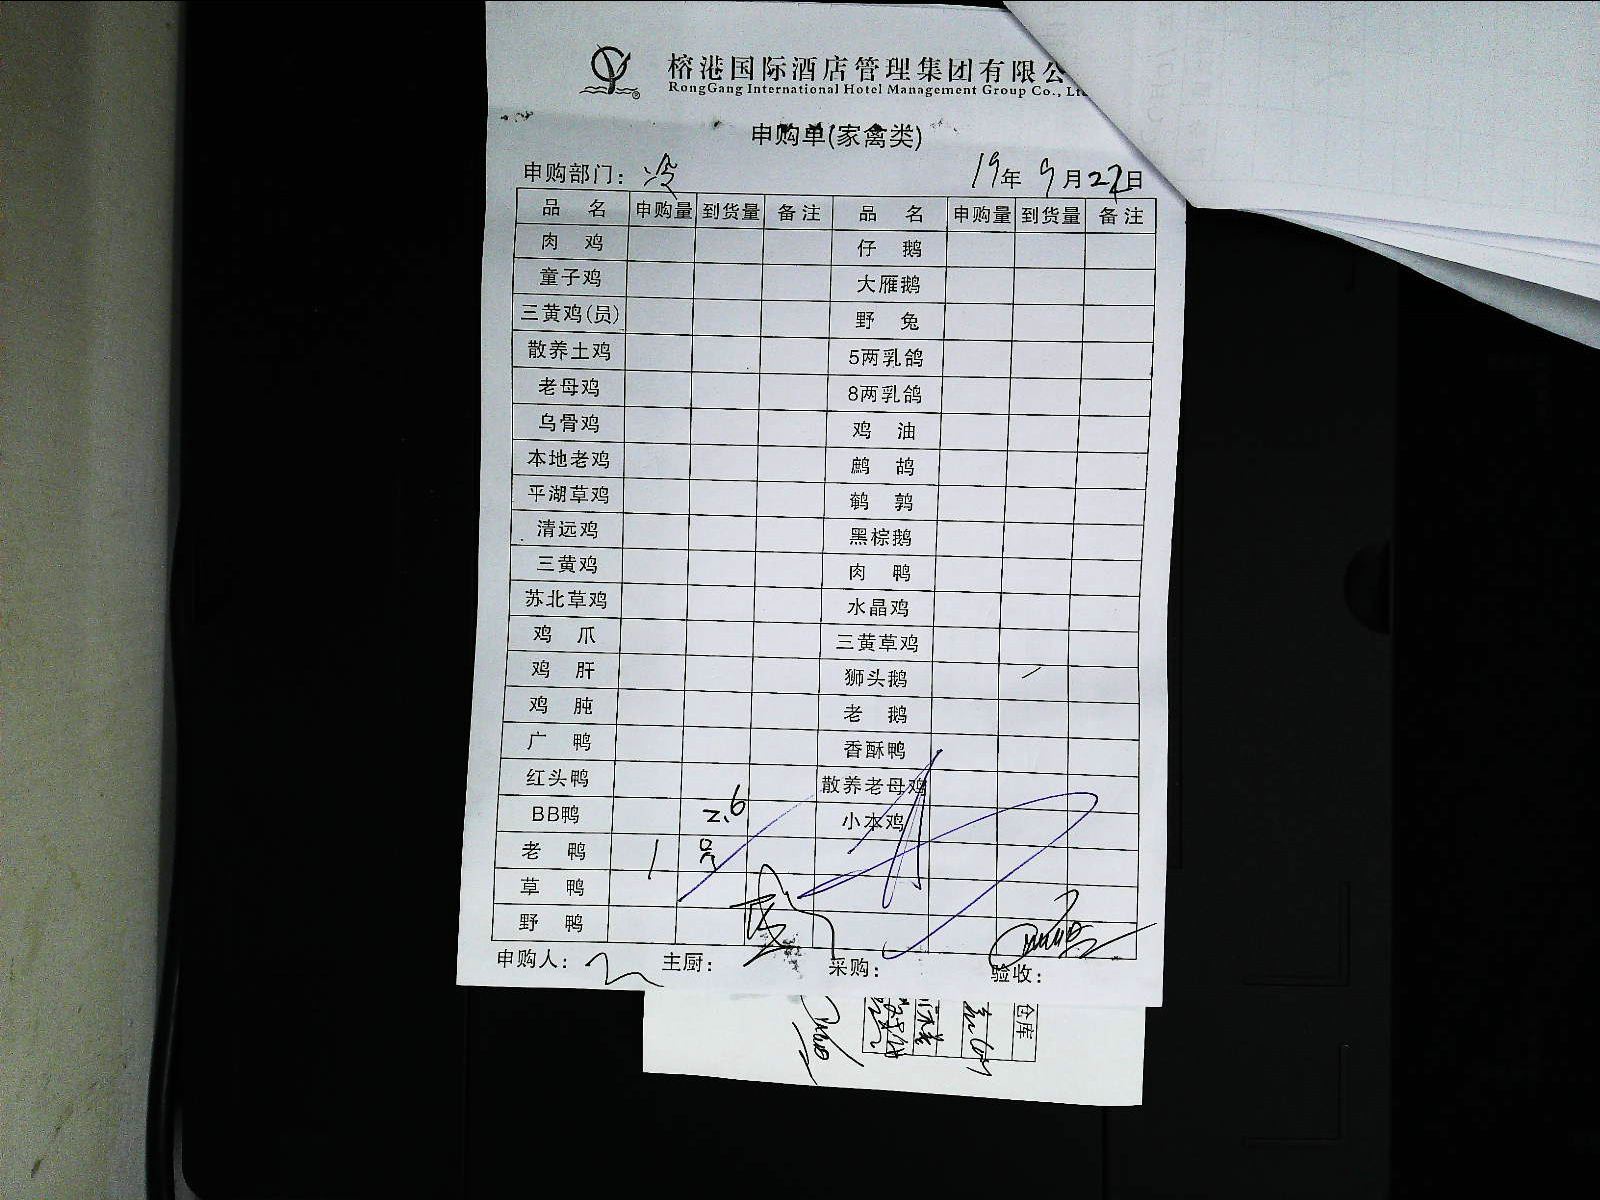 榕港国际酒店管理集团有限公
RongGang International Hotel Management Group Co., Lt
申购单(家禽类)
申购部门: 冷 19年 9月 27日
品 名 申购量 到货量 备注 品 名 申购量 到货量 备注
肉 鸡 仔 鹅
童子鸡 大雁鹅
三黄鸡(员) 野 兔
散养土鸡 5两乳鸽
老母鸡 8两乳鸽
乌骨鸡 鸡 油
本地老鸡 鹧 鸪
平湖草鸡 鹌 鹑
清远鸡 黑棕鹅
三黄鸡 肉 鸭
苏北草鸡 水晶鸡
鸡 爪 三黄草鸡
鸡 肝 狮头鹅
鸡 肫 老 鹅
广 鸭 香酥鸭
红头鸭 散养老母鸡
BB鸭 2.6 小本鸡
老 鸭 1 只
草 鸭
野 鸭
申购人: 主厨: 采购: 验收:
仓库